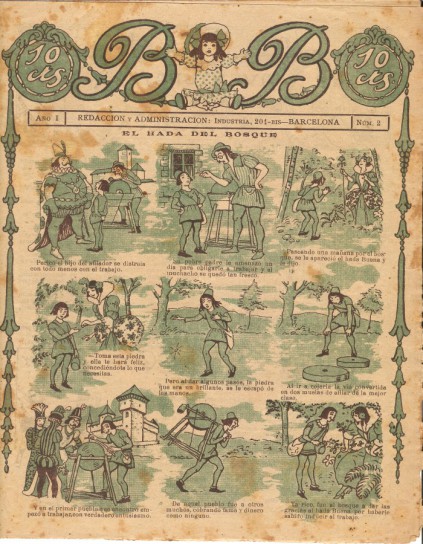 10 cts
BB
10 cts
AÑO I
REDACCION Y ADMINISTRACION: INDUSTRIA, 201-BIS—BARCELONA
NÚM. 2
EL HADA DEL BOSQUE
el hijo del afilador se distraía
con todo menos con el trabajo.
padre le
día para obligarle a trabajar y el
muchacho se quedó tan fresco.
Paseando una mañana por el bos-
que, se le apareció el hada
dijo.
—Toma esta piedra
y ella te hará feliz,
concediéndote lo que
necesites.
Pero al dar algunos pasos, la piedra
que era un brillante, se le escapó de
las manos.
Al ir a cojerla la vió convertida
en dos muelas de afilar de la mejor
clase.
Y en el primer pueblo
pezó a trabajar con verdadero entusiasmo.
De aquel pueblo fué a otros
muchos, cobrando fama y dinero
como ninguno.
fué al bosque a dar las
gracias al hada por haberle
el trabajo.